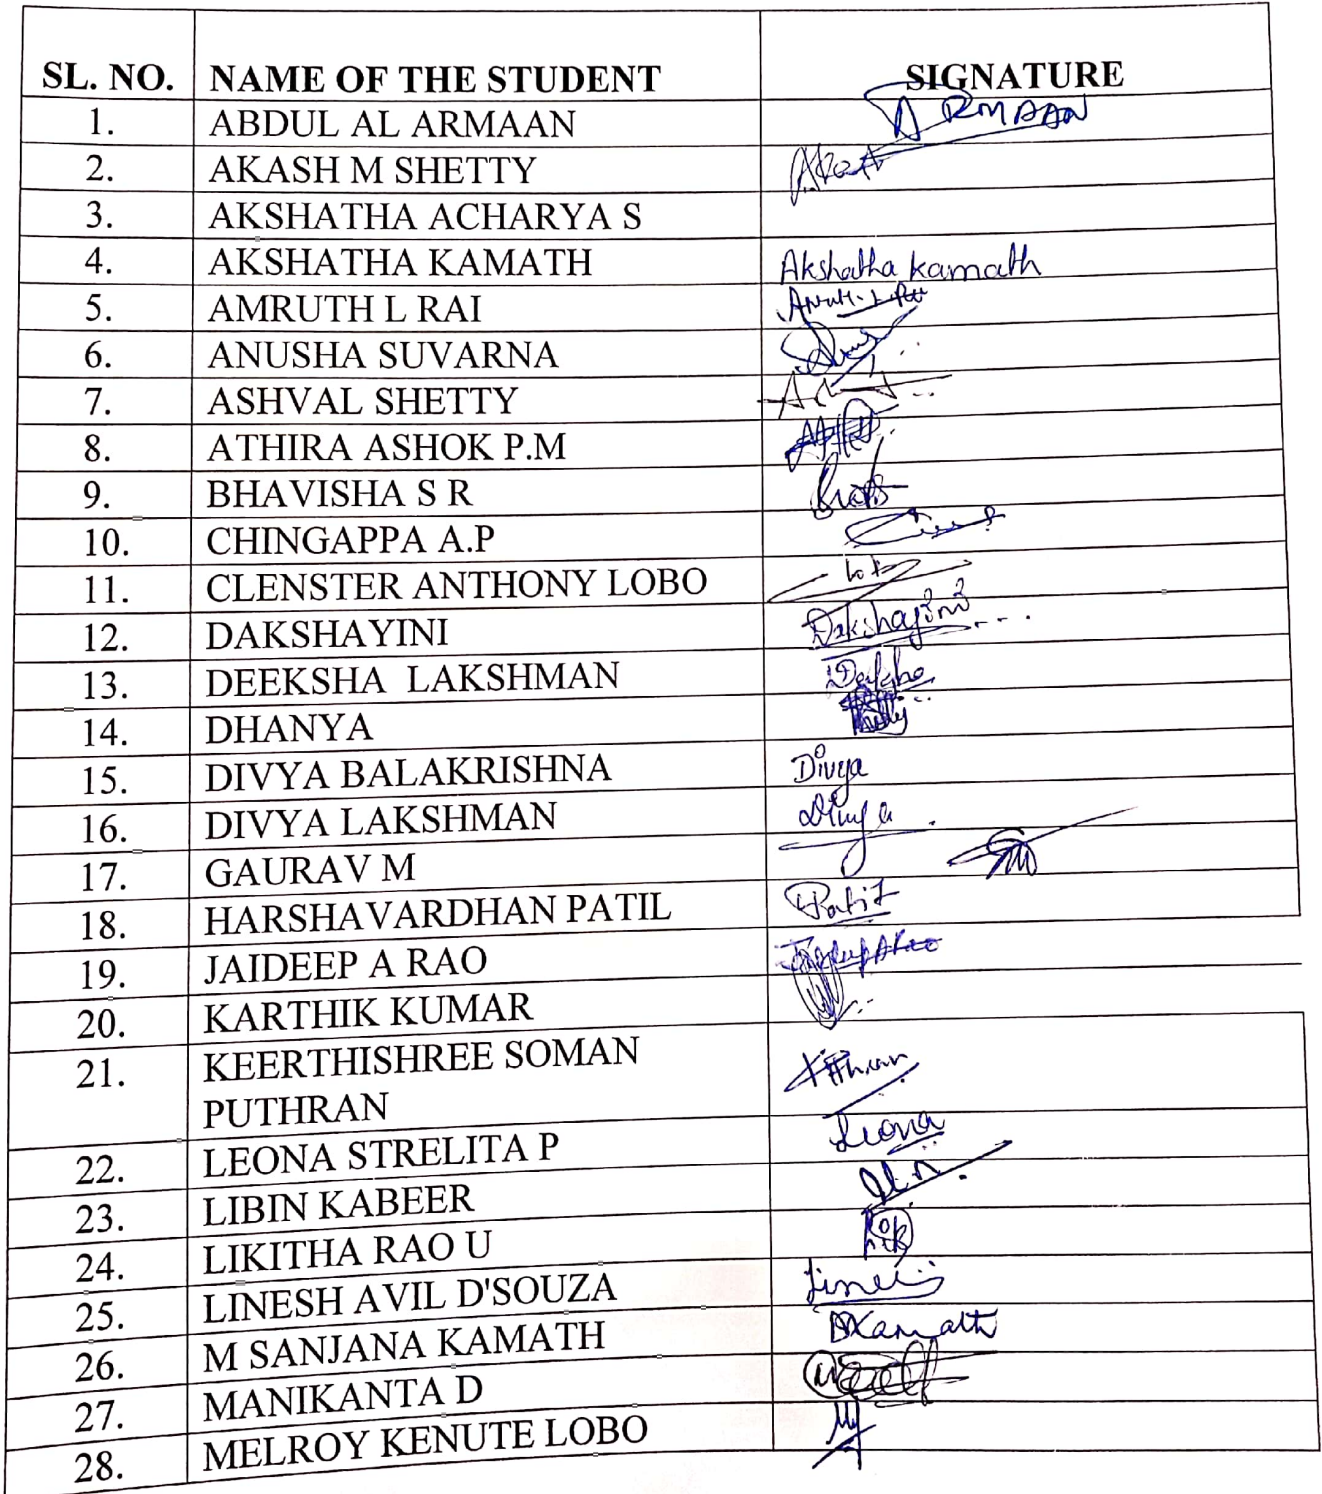 SL. NO. NAME OF THE STUDENT SIGNATURE
1. ABDUL AL ARMAAN ARMAAN
2. AKASH M SHETTY Akash
3. AKSHATHA ACHARYA S
4. AKSHATHA KAMATH Akshatha kamath
5. AMRUTH L RAI
6. ANUSHA SUVARNA
7. ASHVAL SHETTY
8. ATHIRA ASHOK P.M
9. BHAVISHA S R
10. CHINGAPPA A.P
11. CLENSTER ANTHONY LOBO
12. DAKSHAYINI Dakshayini
13. DEEKSHA LAKSHMAN
14. DHANYA
15. DIVYA BALAKRISHNA Divya
16. DIVYA LAKSHMAN Divya
17. GAURAV M
18. HARSHAVARDHAN PATIL Patil
19. JAIDEEP A RAO
20. KARTHIK KUMAR
21. KEERTHISHREE SOMAN
PUTHRAN
22. LEONA STRELITA P Leona
23. LIBIN KABEER
24. LIKITHA RAO U
25. LINESH AVIL D'SOUZA
26. M SANJANA KAMATH
27. MANIKANTA D
28. MELROY KENUTE LOBO